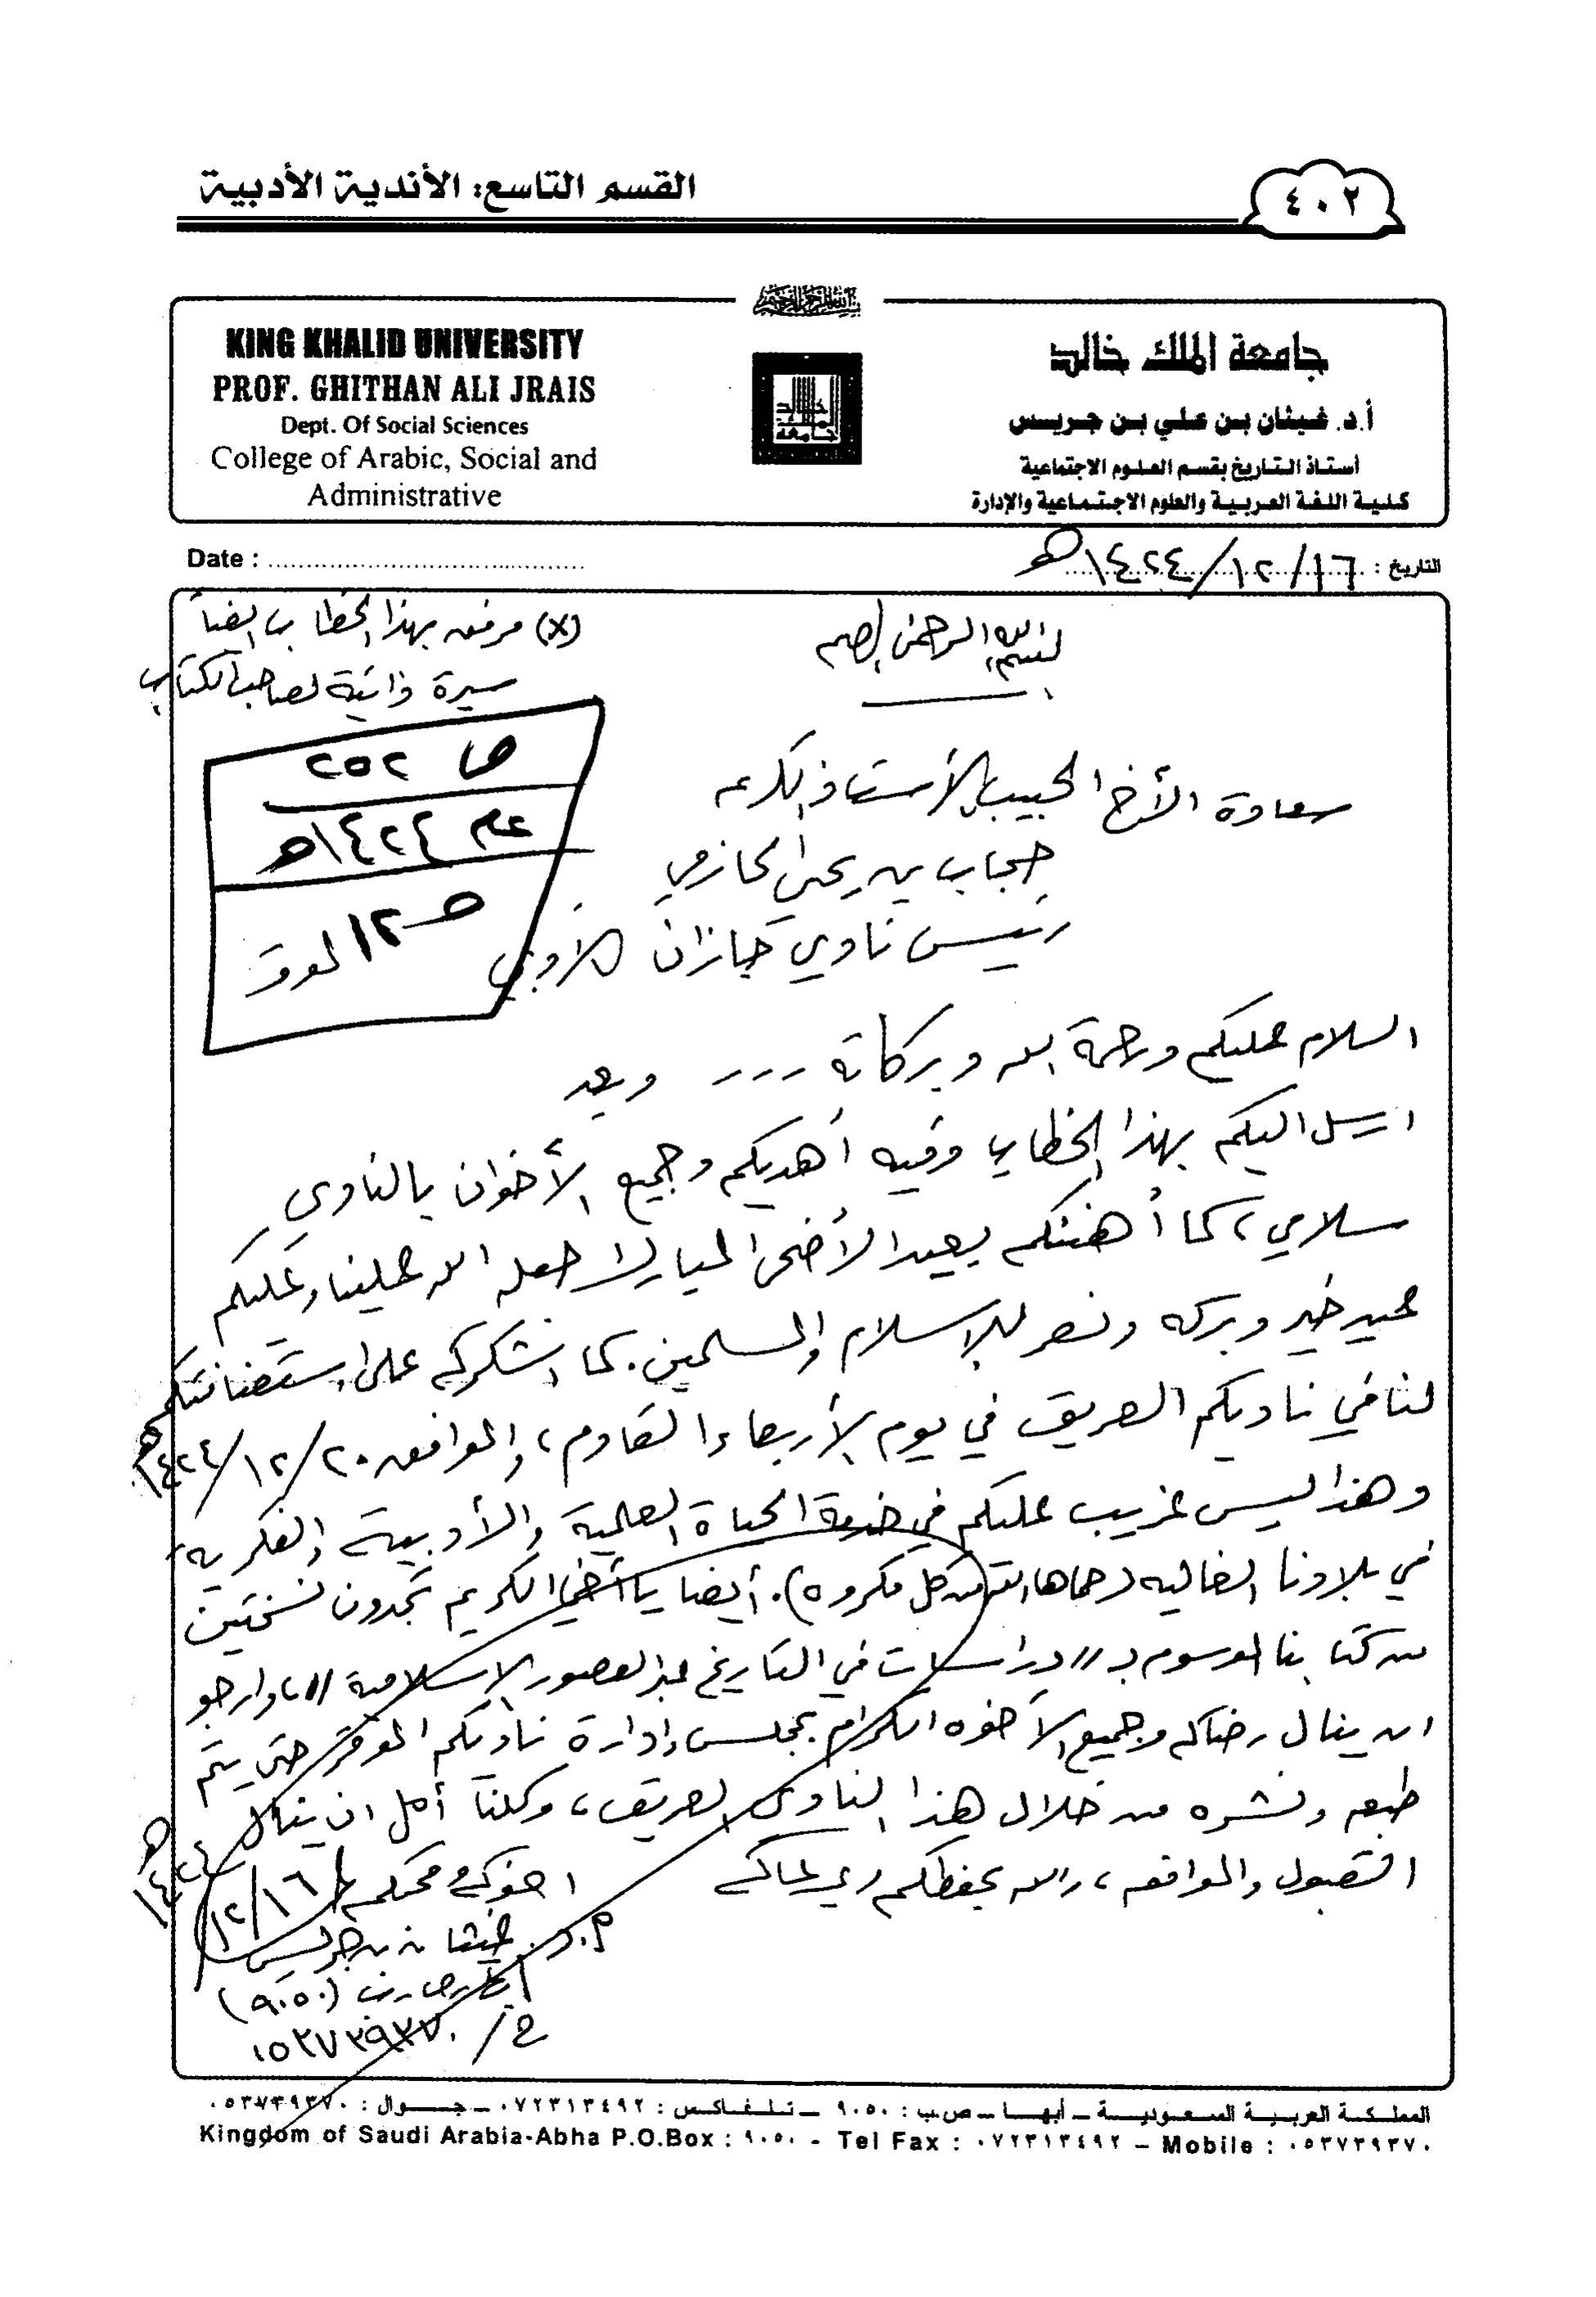 القسم التاسع: الأندية الأدبية
٤٠٢
KING KHALID UNIVERSITY
PROF. GHITHAN ALI JRAIS
Dept. Of Social Sciences
College of Arabic, Social and
Administrative
جامعة الملك خالد
أ.د. غيثان بن علي بن جريس
أستاذ التاريخ بقسم العلوم الاجتماعية
كلية اللغة العربية والعلوم الاجتماعية والإدارة
Date :
التاريخ : ١٦/ ١٢/ ١٤٢٤هـ
(x) مرفق بهذا الخطاب ايضاً
سيرة ذاتية لصاحب الكتاب
بسم الله الرحمن الرحيم
ص ٢٥٢
عام ١٤٢٤هـ
سعادة الأخ الحبيب الأستاذ الكريم
حجاب بن يحي الحازمي
رئيس نادي جازان الأدبي
السلام عليكم ورحمة الله وبركاته --- وبعد
ارسل اليكم بهذا الخطاب وفيه أهديكم وجميع الأخوان بالنادي
سلامي، كما أهنئكم بعيد الأضحى المبارك جعله الله علينا وعليكم
عيد خير وبركه ونصر للإسلام والمسلمين. كما اشكركم على استضافتكم
لنا في ناديكم العريق في يوم الأربعاء القادم، والموافق ٢٠/ ١٢/ ١٤٢٤هـ
وهذا ليس غريب عليكم في خدمة الحياة العلمية والأدبية والفكرية
في بلادنا الغاليه (حماها الله من كل مكروه). أيضا يا أخي الكريم تجدون نسختين
من كتابنا الموسوم بـ "دراسات في التاريخ عبر العصور الإسلامية"، وارجو
ان ينال رضاكم وجميع الأخوه الكرام بمجلس إدارة ناديكم الموقر حتى يتم
طبعه ونشره من خلال هذا النادي العريق، وكلنا أمل ان ينال
القبول والموافقه، والله يحفظكم ويرعاكم
اخوكم ومحبكم
١٦/ ١٢/ ١٤٢٤هـ
أ.د. غيثان بن جريس
أبها ص.ب (٩٠٥٠)
ج/ ٠٥٣٧٣٩٣٧٠
المملكة العربية السعودية – أبها – ص.ب : ٩٠٥٠ – تلفاكس : ٠٧٢٣١٣٤٩٢ – جوال : ٠٥٣٧٣٩٣٧٠
Kingdom of Saudi Arabia-Abha P.O.Box : ٩٠٥٠ - Tel Fax : ٠٧٢٣١٣٤٩٢ – Mobile : ٠٥٣٧٣٩٣٧٠